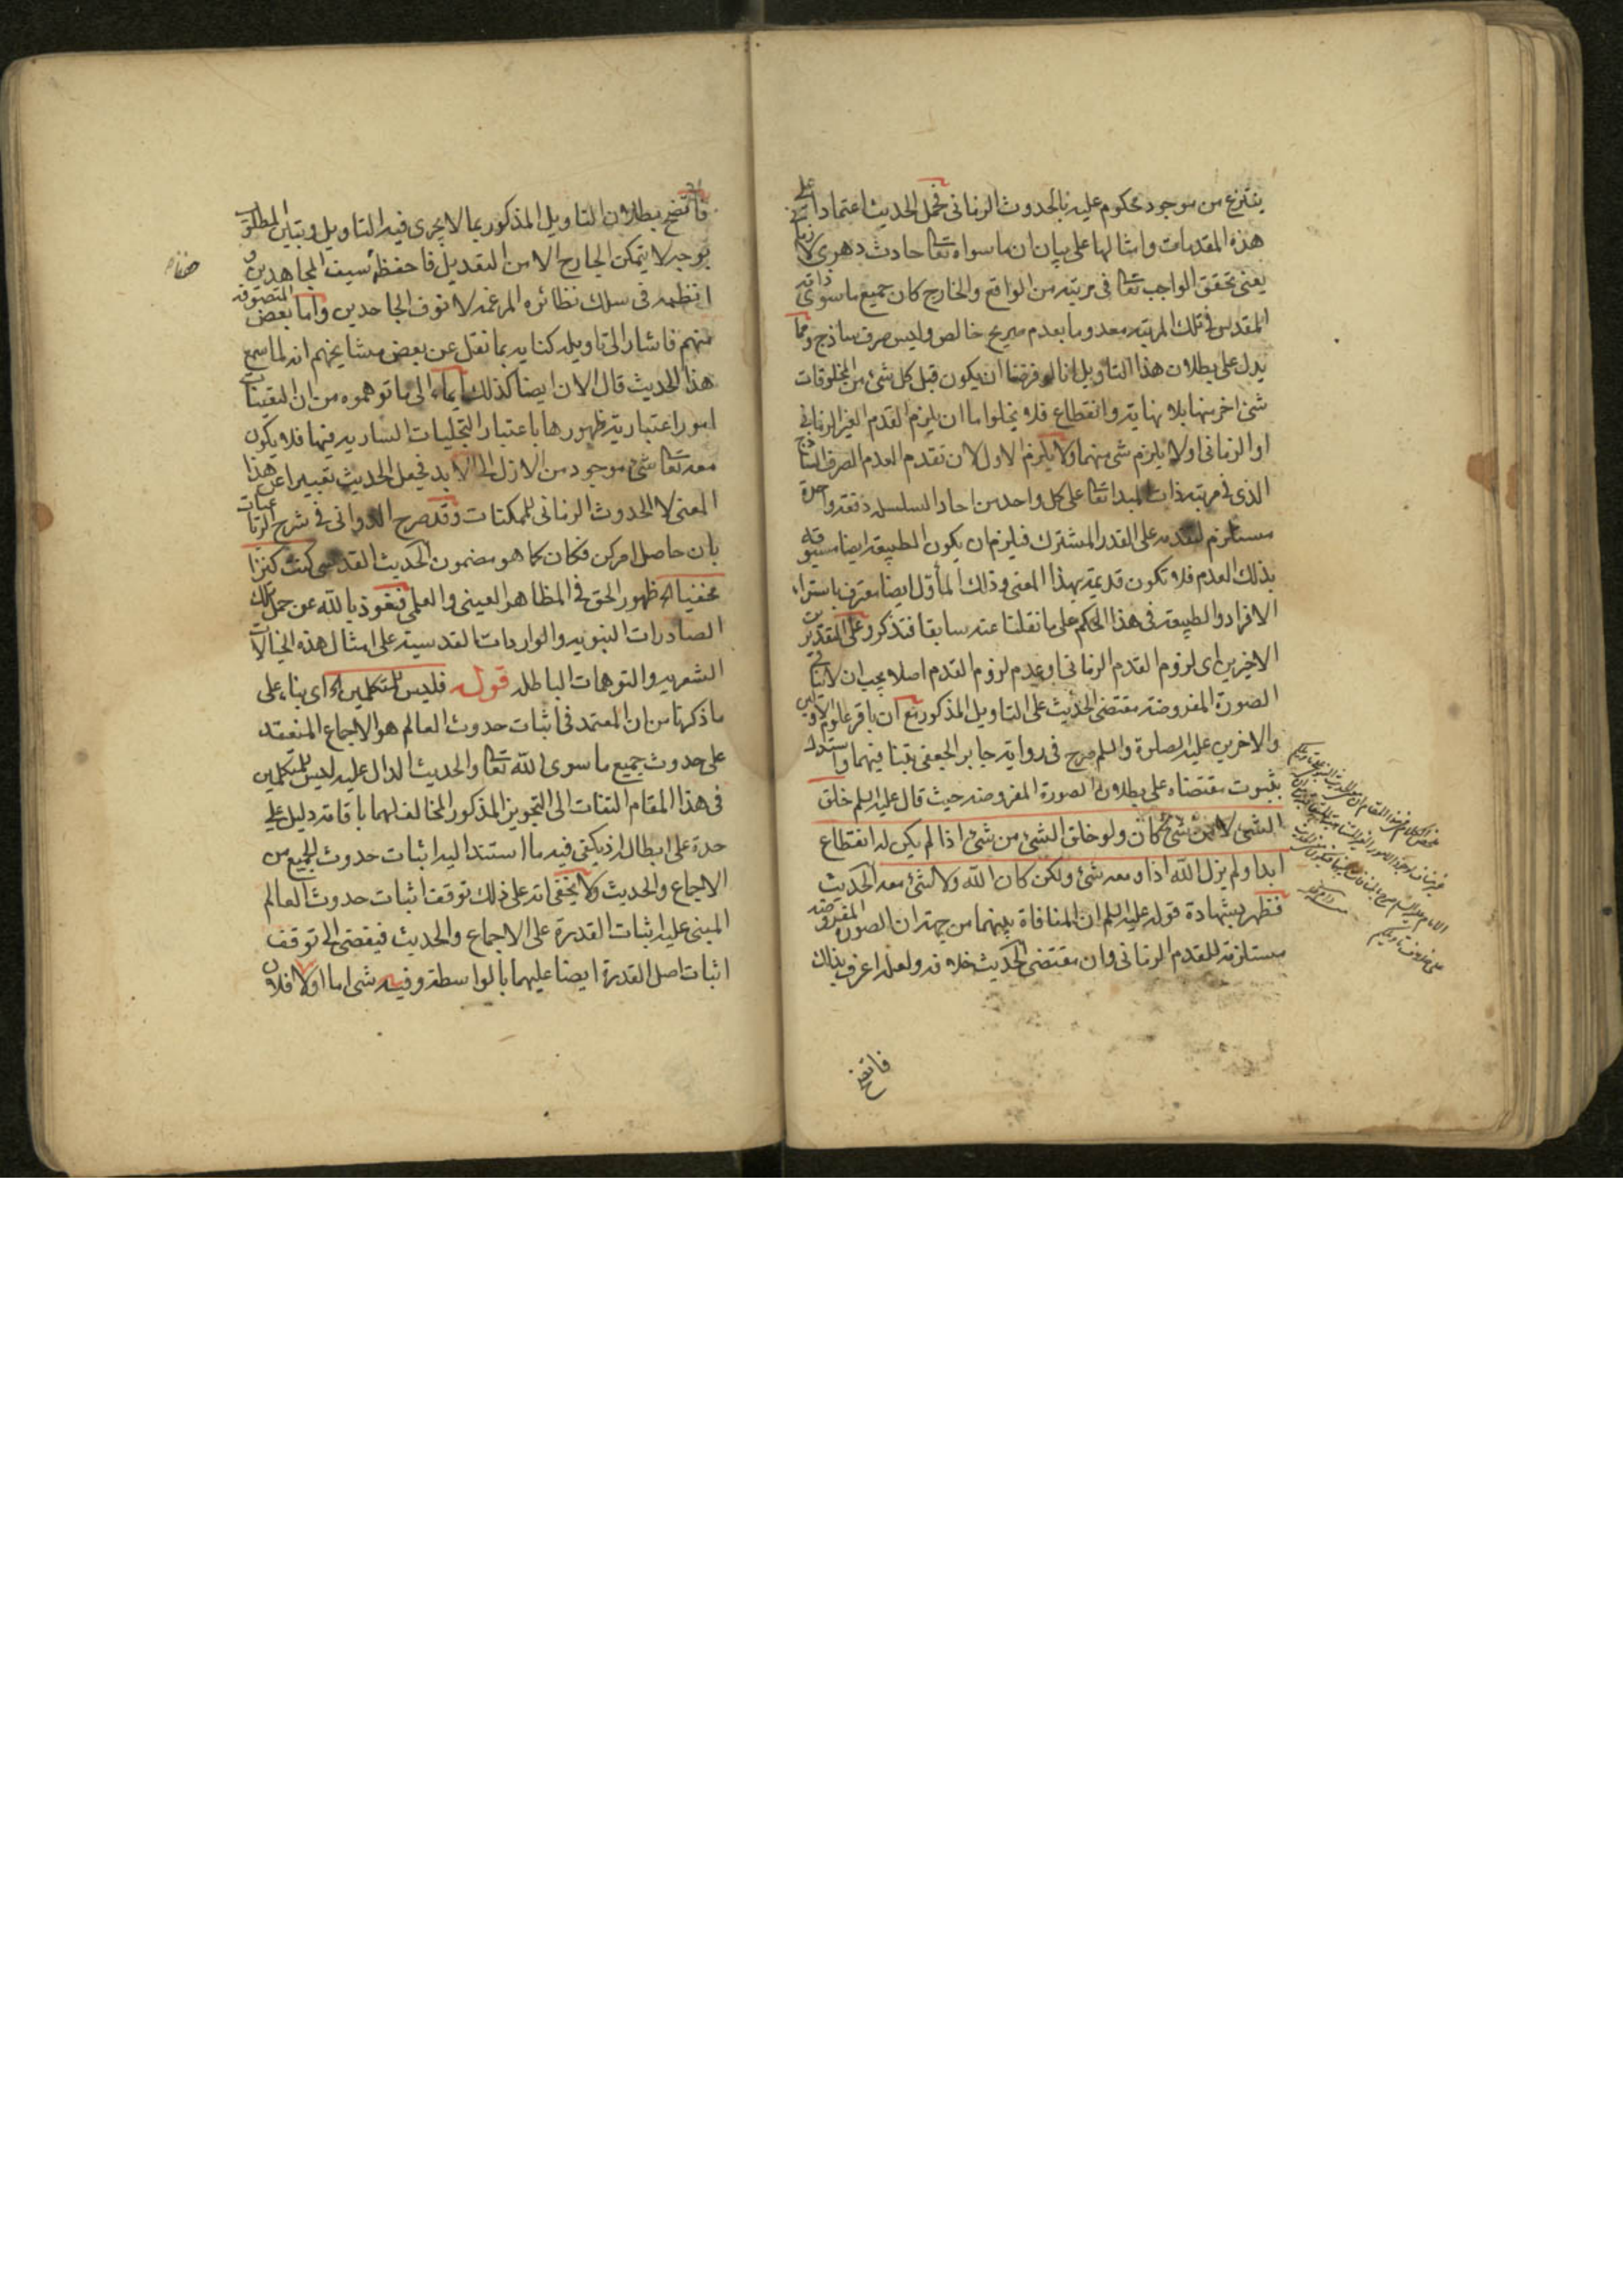 ينتزع من موجود محكوم عليه بالحدوث الزمانى فحمل الحديث اعتمادا على
هذه المقدمات وامثالها على بيان ان ما سواه تعا حادث دهرى لا زمانى
يعنى تحقق الواجب تعا فى مرتبة من الواقع والخارج كان جميع ما سوى ذاته
المقدس فى تلك المرتبة معدوما بعدم صريح خالص وليس صرف ساذج ومما
يدل على بطلان هذا التاويل انا لو فرضنا ان يكون قبل كل شئ من المخلوقات
شئ اخر منها بلا نهاية وانقطاع فلا يخلوا ما ان يلزم القدم الغير الزمانى
او الزمانى او لا يلزم شى منهما ولا يلزم الاول لان تقدم العدم الصرف الساذج
الذى فى مرتبة ذات المبدا تعا على كل واحد من احاد السلسلة دفعة واحدة
مستلزم لتقدمه على القدر المشترك فيلزم ان يكون الطبيعة ايضا مسبوقة
بذلك العدم فلا تكون قديمة بهذا المعنى وذلك المأول ايضا معترف باشتراك
الافراد والطبيعة فى هذا الحكم على ما نقلنا عنه سابقا فتذكر وعلى التقديرين
الاخيرين اى لزوم القدم الزمانى او عدم لزوم القدم اصلا يجب ان لا ينافى
الصورة المفروضة مقتضى الحديث على التاويل المذكور مع ان باقر علوم الاولين
والاخرين عليه الصلوة والسلم صرح فى رواية جابر الجعفى بتنافيهما واستدل
بثبوت مقتضاه على بطلان الصورة المفروضة حيث قال عليه السلم خلق
الشئ لا من شئ كان ولو خلق الشئ من شئ اذا لم يكن له انقطاع
ابدا ولم يزل الله اذا ومعه شئ ولكن كان الله ولا شئ معه الحديث
فظهر بشهادة قوله عليه السلم ان المنافاة بينهما من جهة ان الصورة المفروضة
مستلزمة للقدم الزمانى وان مقتضى الحديث خلافه ولعله اعرف بذلك
فاتضح
فاتضح بطلان التاويل المذكور بما لا يجرى فيه التاويل وتباين المطلق
بوجه لا يتمكن الجارح الا من التعديل فاحفظه سيف المجاهدين و
انظمه فى سلك نظائره المرغمة لانوف الجاحدين واما بعض المتصوفة
منهم فاشار الى تاويله كناية بما نقل عن بعض مشايخهم انه لما سمع
هذا الحديث قال الان ايضا كذلك ايماء الى ما توهموه من ان التعينات
امور اعتبارية ظهورها باعتبار التجليات السارية فيها فلا يكون
معه تعا شئ موجود من الازل الى الابد فجعل الحديث تعبيرا عن هذا
المعنى لا الحدوث الزمانى للممكنات وقد صرح الدوانى فى شرح الرباعيات
بان حاصل امر كن فكان كما هو مضمون الحديث القدسى كنت كنزا
مخفيا الخ ظهور الحق فى المظاهر العينى والعلمى فنعوذ بالله عن حمل تلك
الصادرات النبوية والواردات القدسية على امثال هذه الخيالات
الشعرية والتوهمات الباطلة قوله فليس للمتكلمين الخ اى بناء على
ما ذكرنا من ان المعتمد فى اثبات حدوث العالم هو الاجماع المنعقد
على حدوث جميع ما سوى الله تعا والحديث الدال عليه ليس للمتكلمين
فى هذا المقام التفات الى التجويز المذكور المخالف لهما باقامة دليل على
حدة على ابطاله اذ يكفى فيه ما استند اليه اثبات حدوث الجميع من
الاجماع والحديث ولا يخفى انه على ذلك توقف اثبات حدوث العالم
المبنى عليه اثبات القدرة على الاجماع والحديث فيفضى الى توقف
اثبات اصل القدرة ايضا عليهما بالواسطة وفيه شى اما اولا فلان